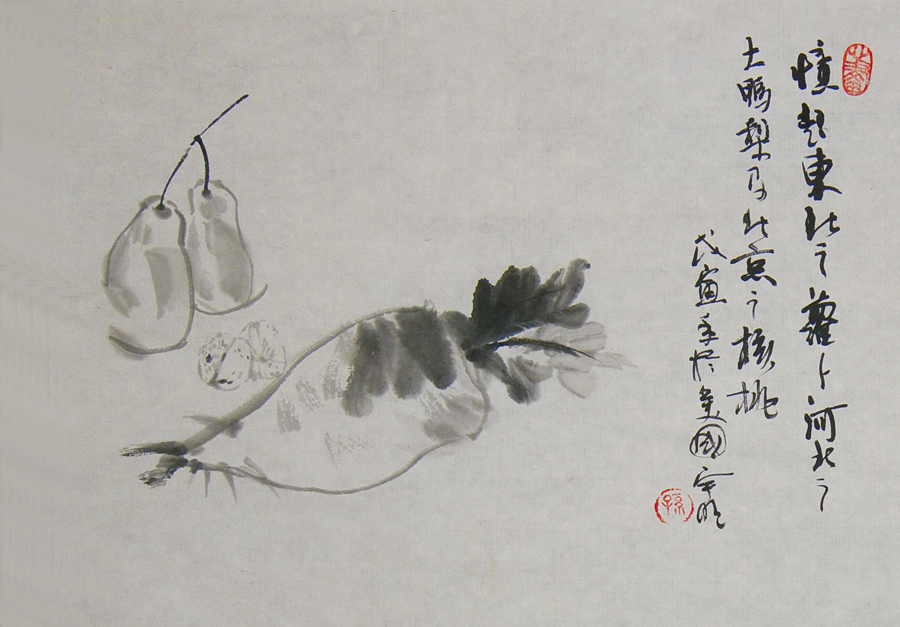 憶起東北之蘿卜河北之
大鴨梨及北京之核桃
戊寅年於美國
孫